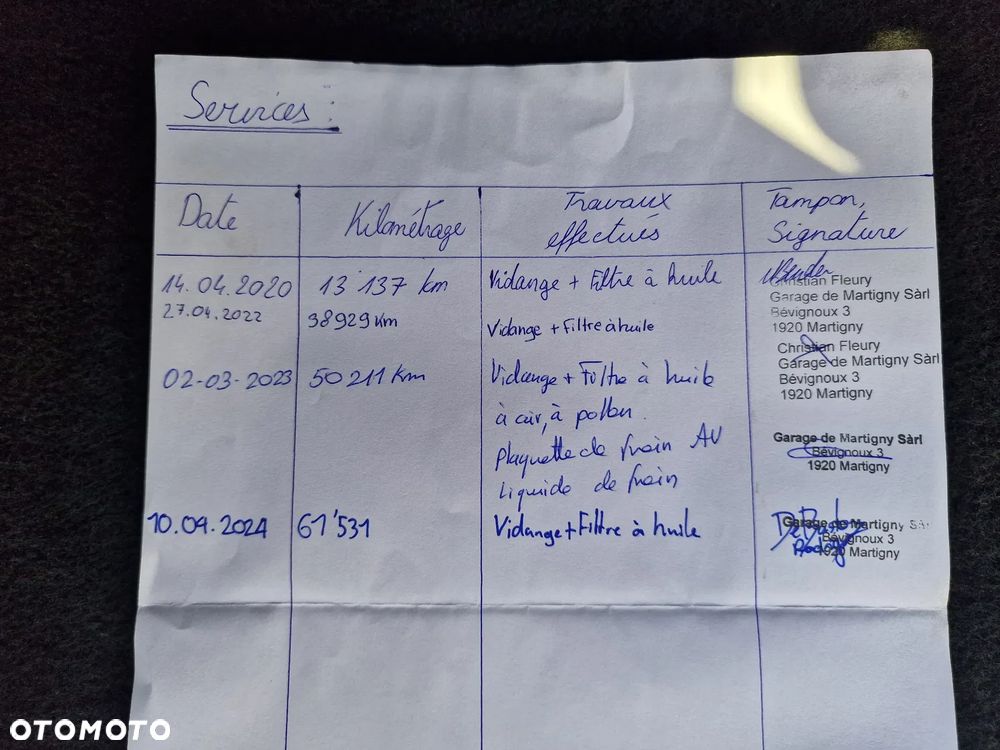 Services :
Date
Kilométrage
Travaux
effectués
Tampon,
Signature
14.04.2020
13 137 km
Vidange + Filtre à huile
Christian Fleury
Garage de Martigny Sàrl
Bévignoux 3
1920 Martigny
27.04.2022
38929 km
Vidange + Filtre à huile
Christian Fleury
Garage de Martigny Sàrl
Bévignoux 3
1920 Martigny
02-03-2023
50 211 km
Vidange + Filtre à huile
à air, à pollen
plaquette de frein AV
Liquide de frein
Garage de Martigny Sàrl
Bévignoux 3
1920 Martigny
10.09.2024
61'531
Vidange + Filtre à huile
Garage de Martigny Sàrl
Bévignoux 3
1920 Martigny
OTOMOTO